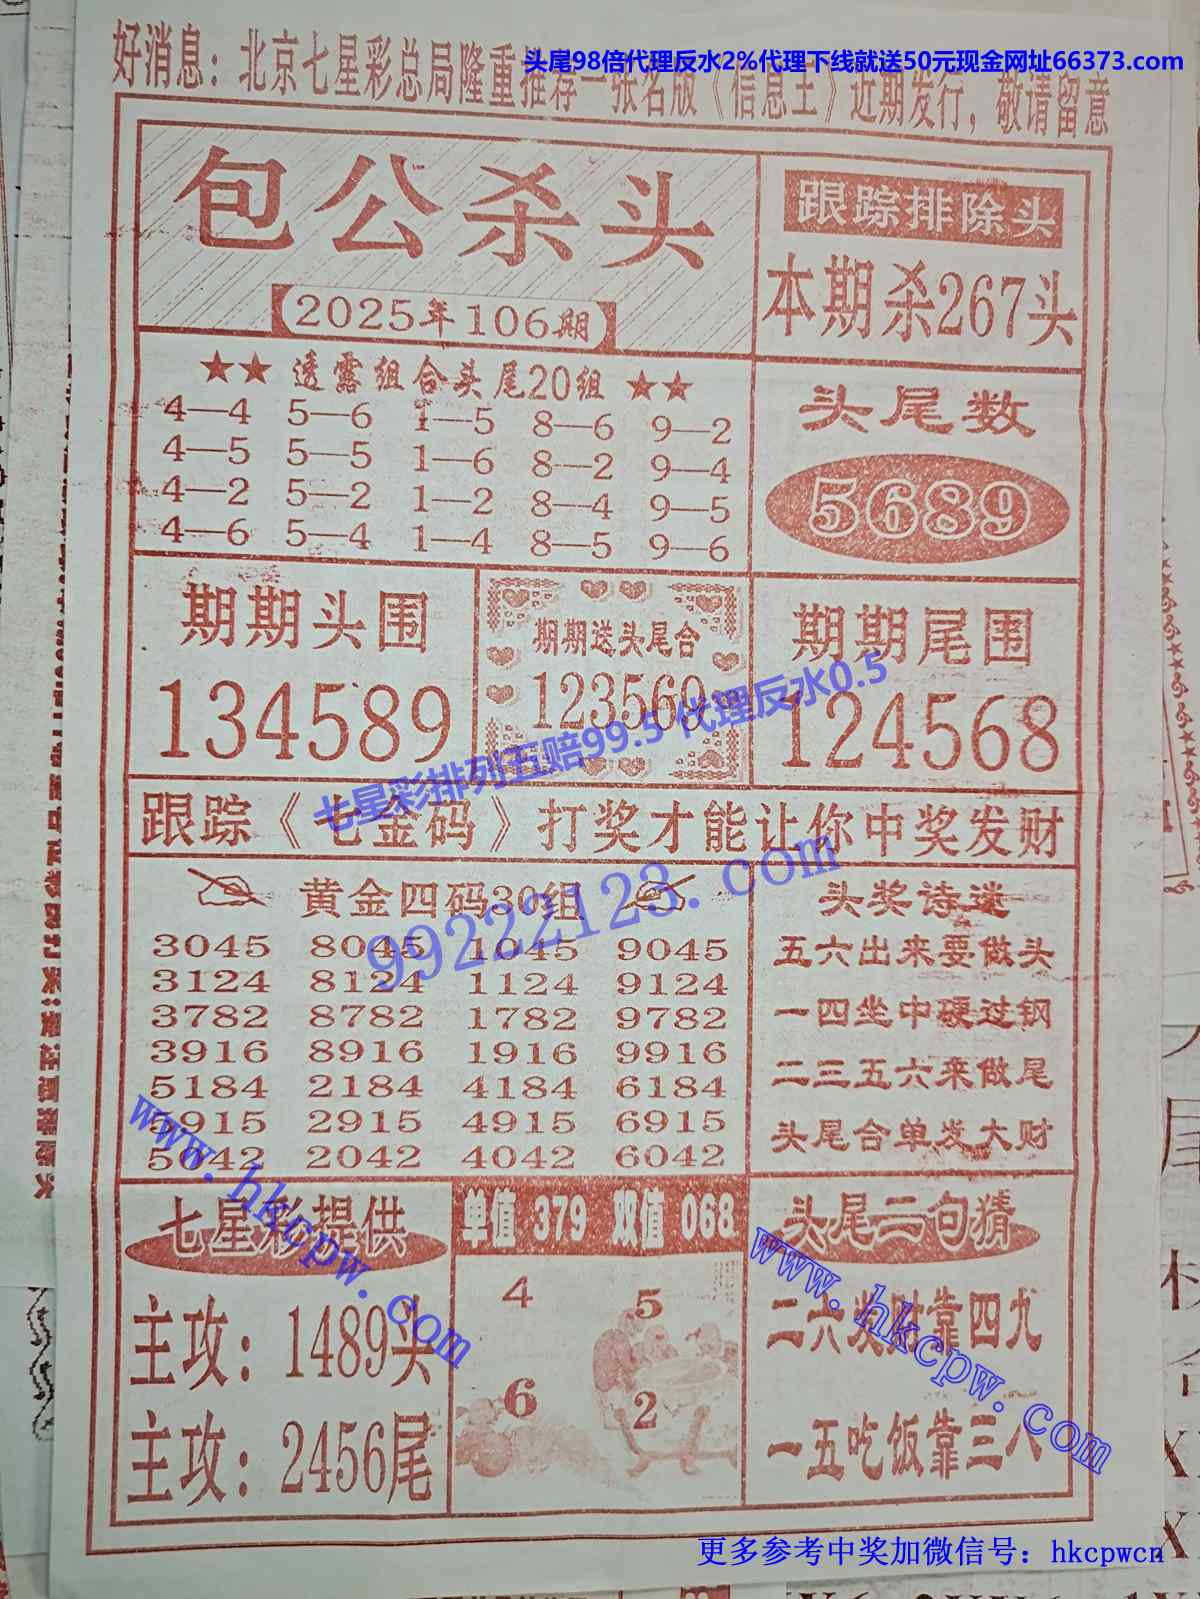 头尾98倍代理反水2%代理下线就送50元现金网址66373.com
好消息：北京七星彩总局隆重推荐一张名版《信息王》近期发行，敬请留意
包公杀头
【2025年106期】
跟踪排除头
本期杀267头
★★ 透露组合头尾20组 ★★
4—4 5—6 1—5 8—6 9—2
4—5 5—5 1—6 8—2 9—4
4—2 5—2 1—2 8—4 9—5
4—6 5—4 1—4 8—5 9—6
头尾数
5689
期期头围
134589
期期送头尾合
123569
期期尾围
124568
七星彩排列五赔99.5 代理反水0.5
跟踪《七金码》打奖才能让你中奖发财
99222123.com
黄金四码30组
3045 8045 1045 9045
3124 8124 1124 9124
3782 8782 1782 9782
3916 8916 1916 9916
5184 2184 4184 6184
5915 2915 4915 6915
5042 2042 4042 6042
头奖诗迷
五六出来要做头
一四坐中硬过钢
二三五六来做尾
头尾合单发大财
www.hkcpw.com
七星彩提供
主攻：1489头
主攻：2456尾
单值 379 双值 068
4 5
6 2
头尾二句猜
二六发财靠四九
一五吃饭靠三八
www.hkcpw.com
更多参考中奖加微信号：hkcpwcn